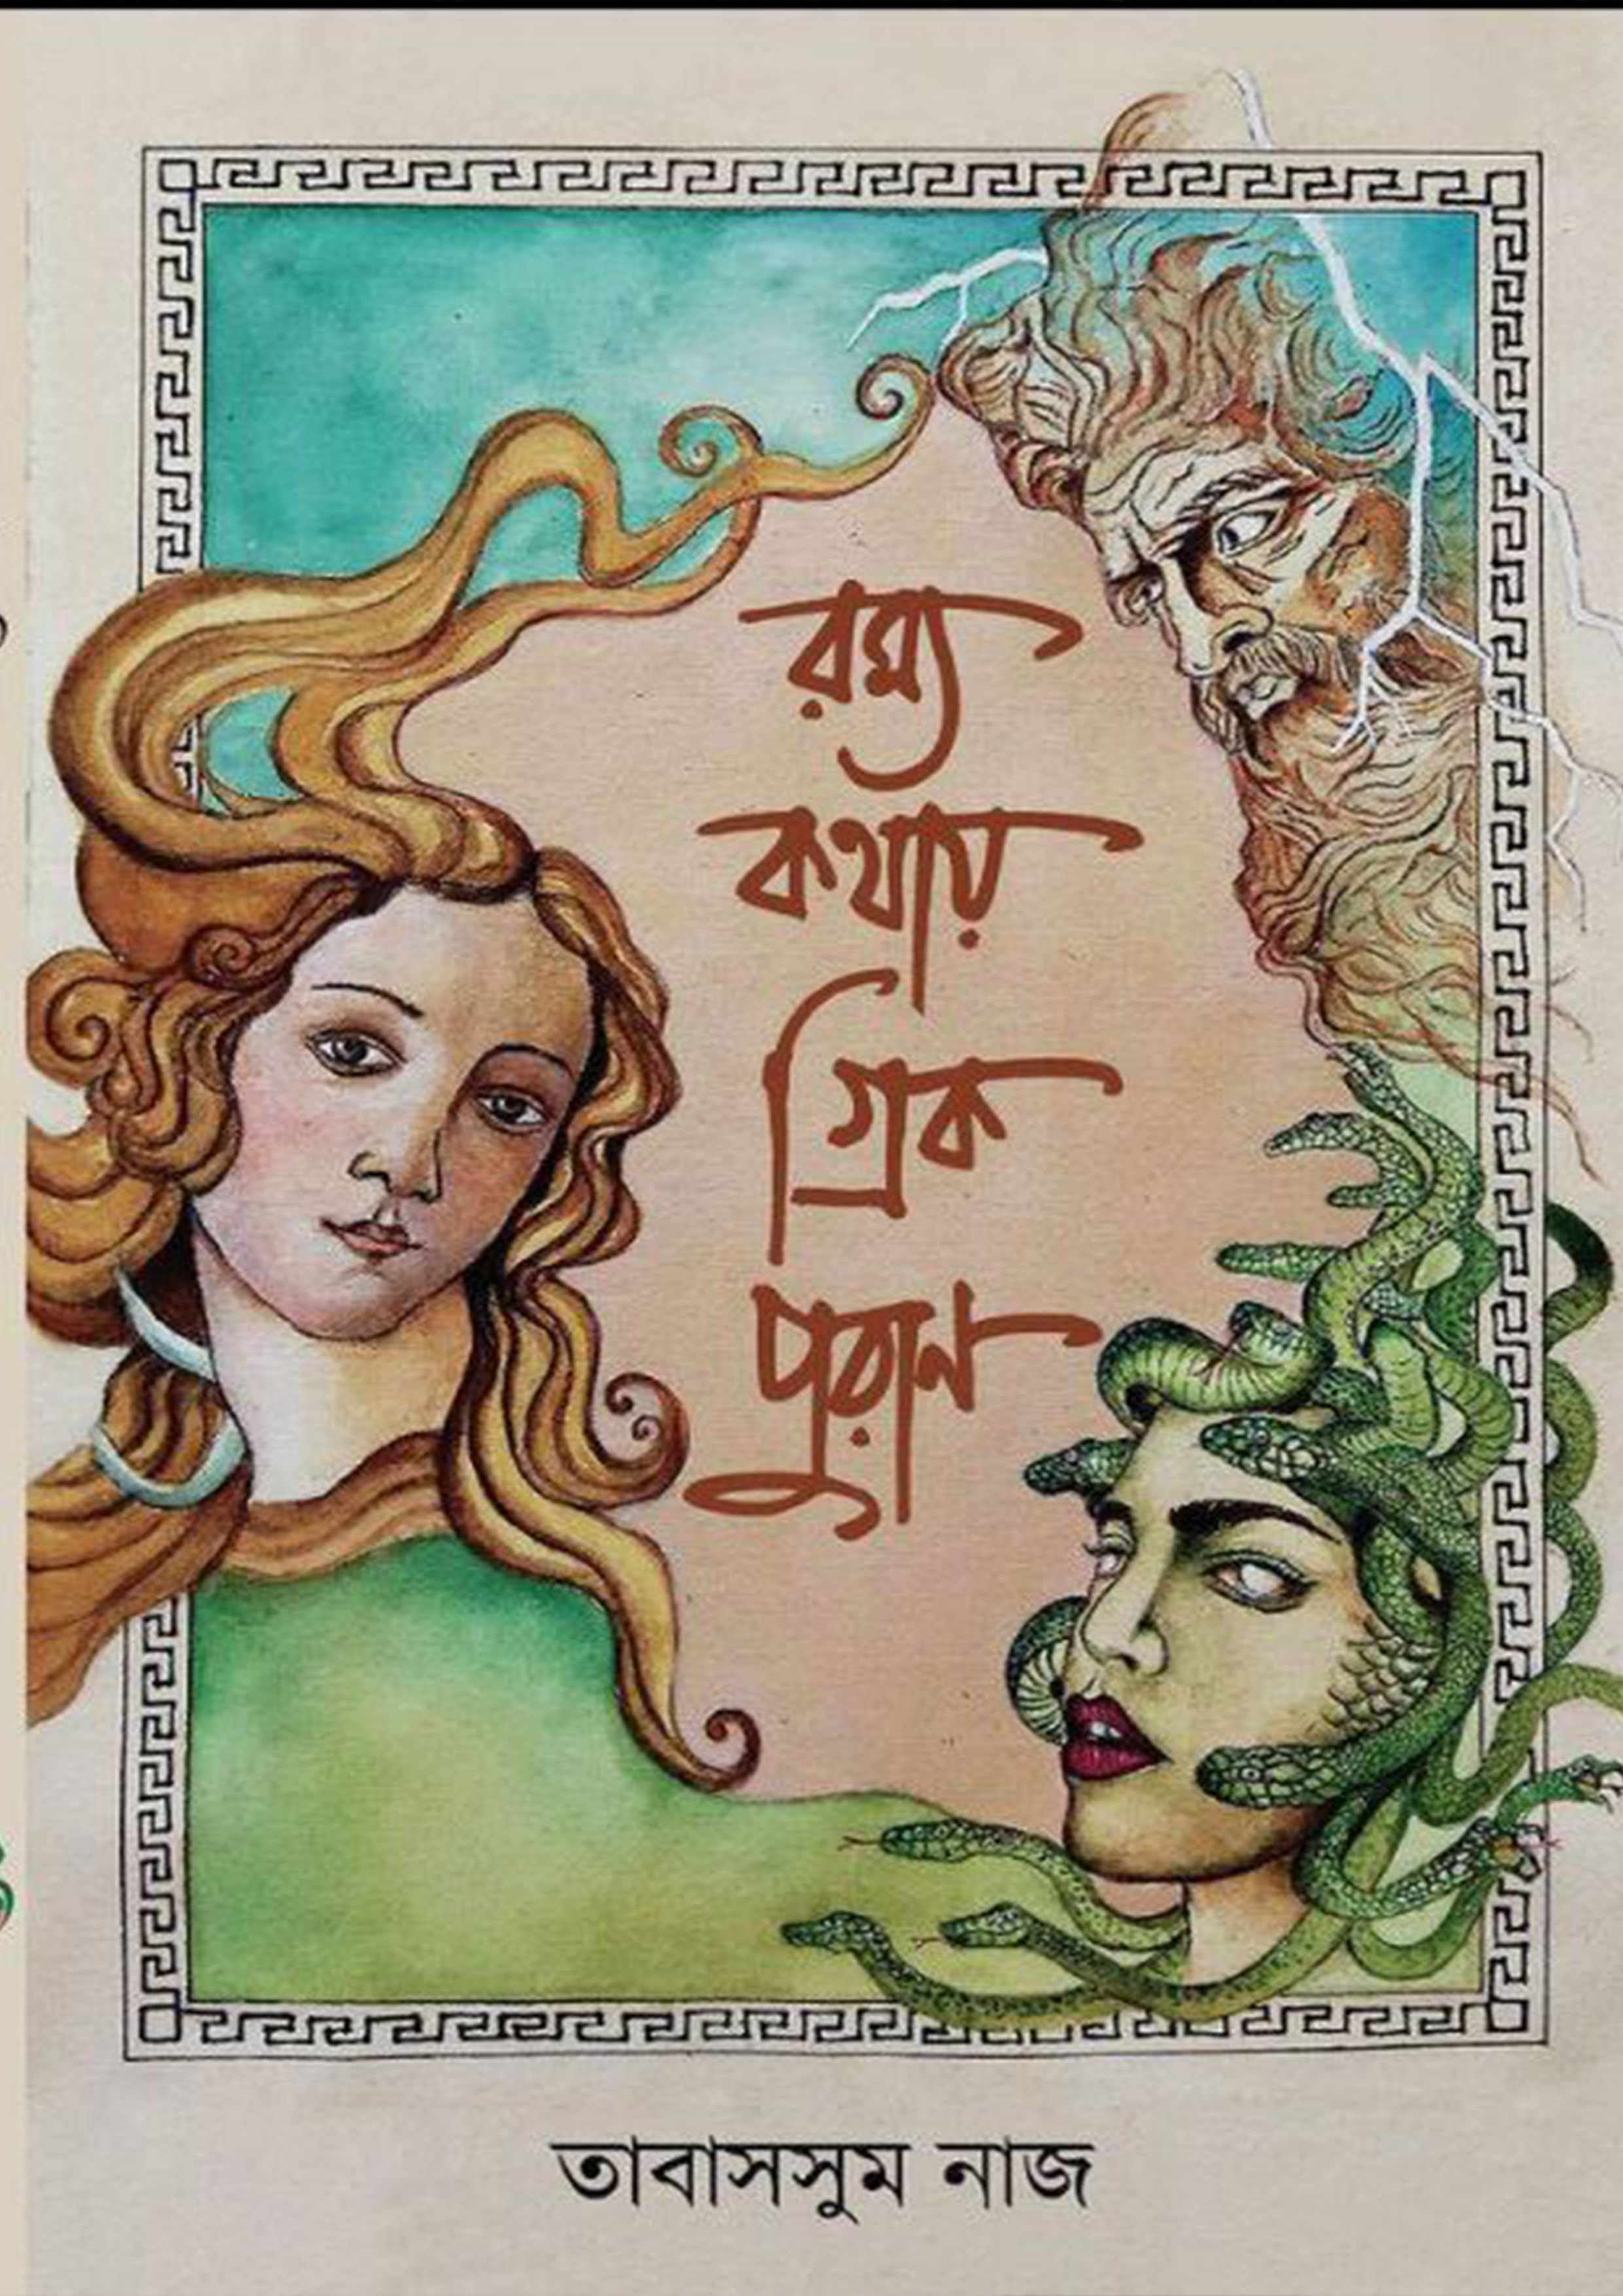 রম্য
কথায়
গ্রিক
পুরান
তাবাসসুম নাজ